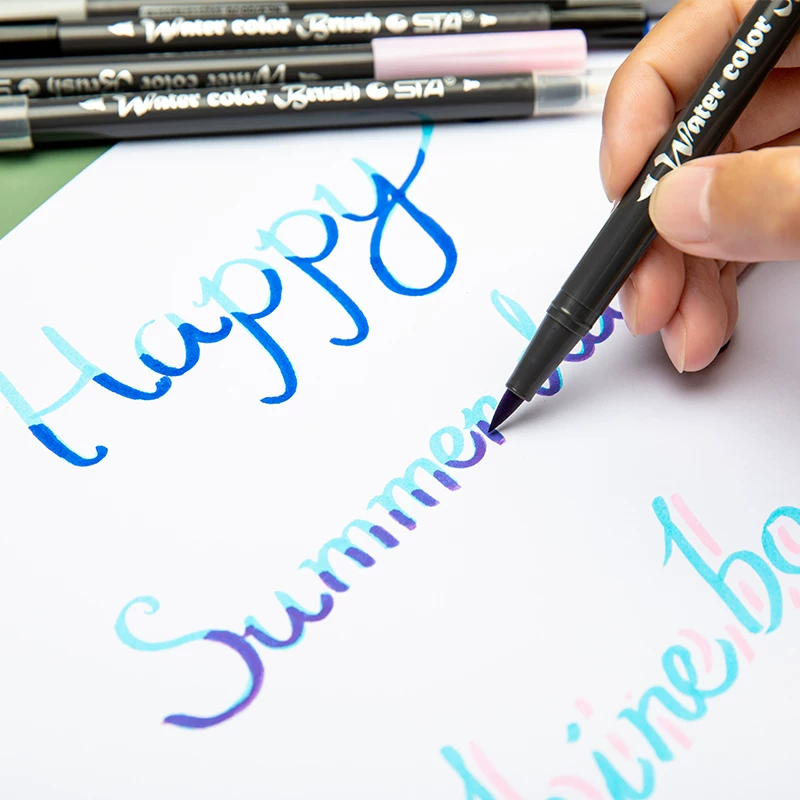 Water color Brush STA
Water color Brush
Water color Brush STA
Water color
Happy
Summer